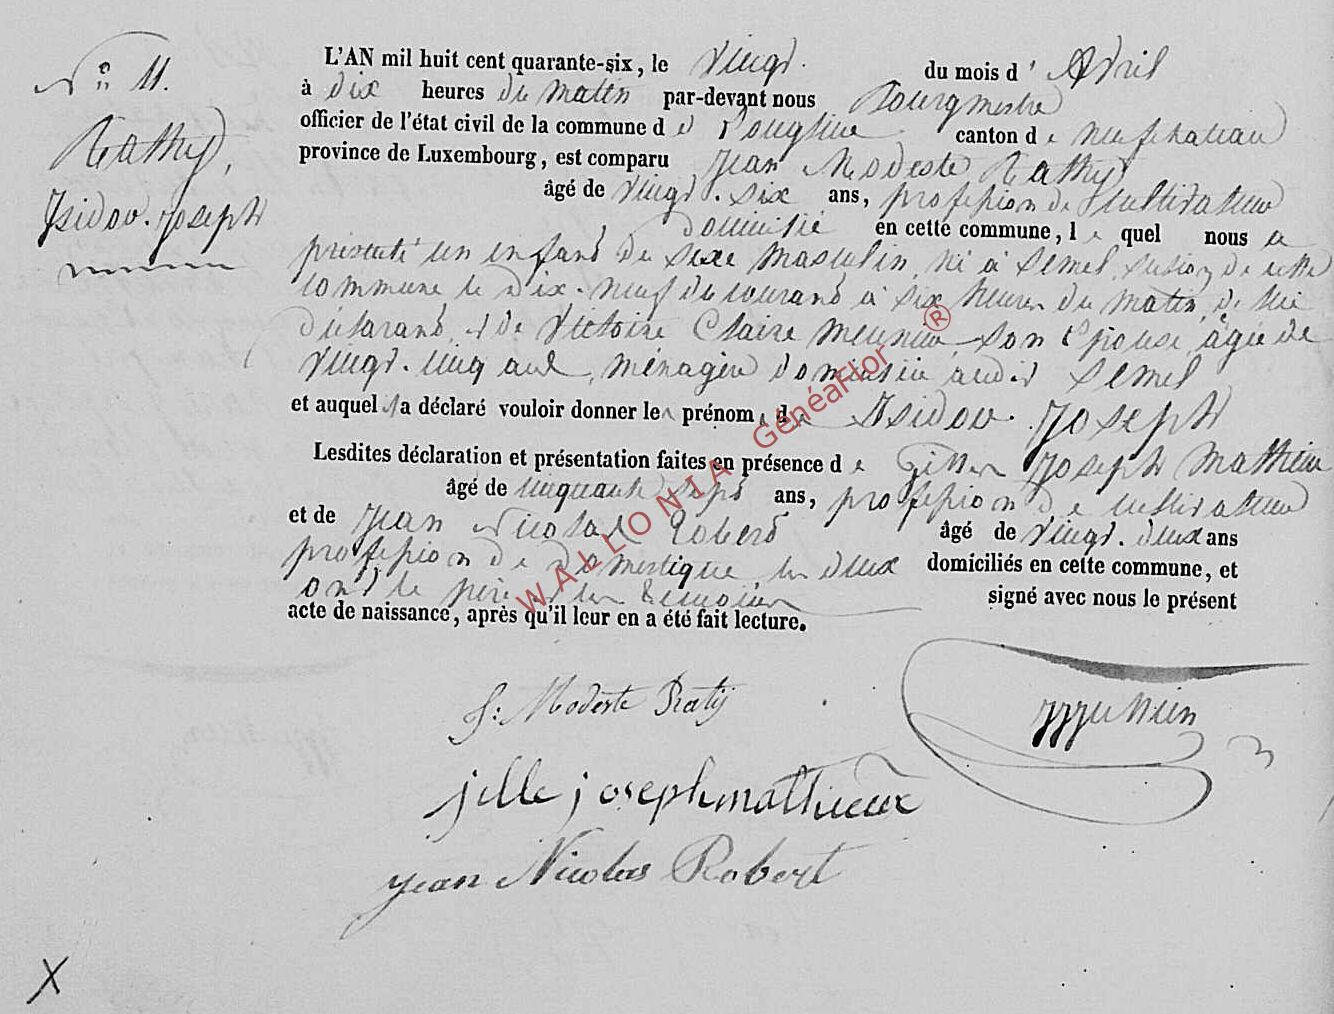 N° 11.
Rathy,
Isidor. Joseph
L'AN mil huit cent quarante-six, le vingt. du mois d' Avril
à dix heures du matin par-devant nous Bourgmestre
officier de l'état civil de la commune d e canton d e neufchateau
province de Luxembourg, est comparu Jean Modeste Rathy
âgé de vingt. six ans, profession de Cultivateur
domicilié en cette commune, l e quel nous a
présenté un enfant du sexe masculin, né à Semel, section de cette
commune le dix-neuf du courant à six heures du matin, de lui
déclarant, et de Victoire Claire Meunier, son épouse, âgée de
vingt. cinq ans, ménagère domiciliée audit Semel
et auquel il a déclaré vouloir donner les prénoms de Isidor. Joseph
Lesdites déclaration et présentation faites en présence d e Gilles Joseph Mathieu
âgé de cinquante sept ans, profession de cultivateur
et de Jean Nicolas Robert âgé de vingt. deux ans
profession de domestique, les deux domiciliés en cette commune, et
ont le père et les témoins signé avec nous le présent
acte de naissance, après qu'il leur en a été fait lecture.
J: Modeste Ratij
jille joseph mathieux
jean Nicolas Robert
WALLONIA GénéaFlor ®
X